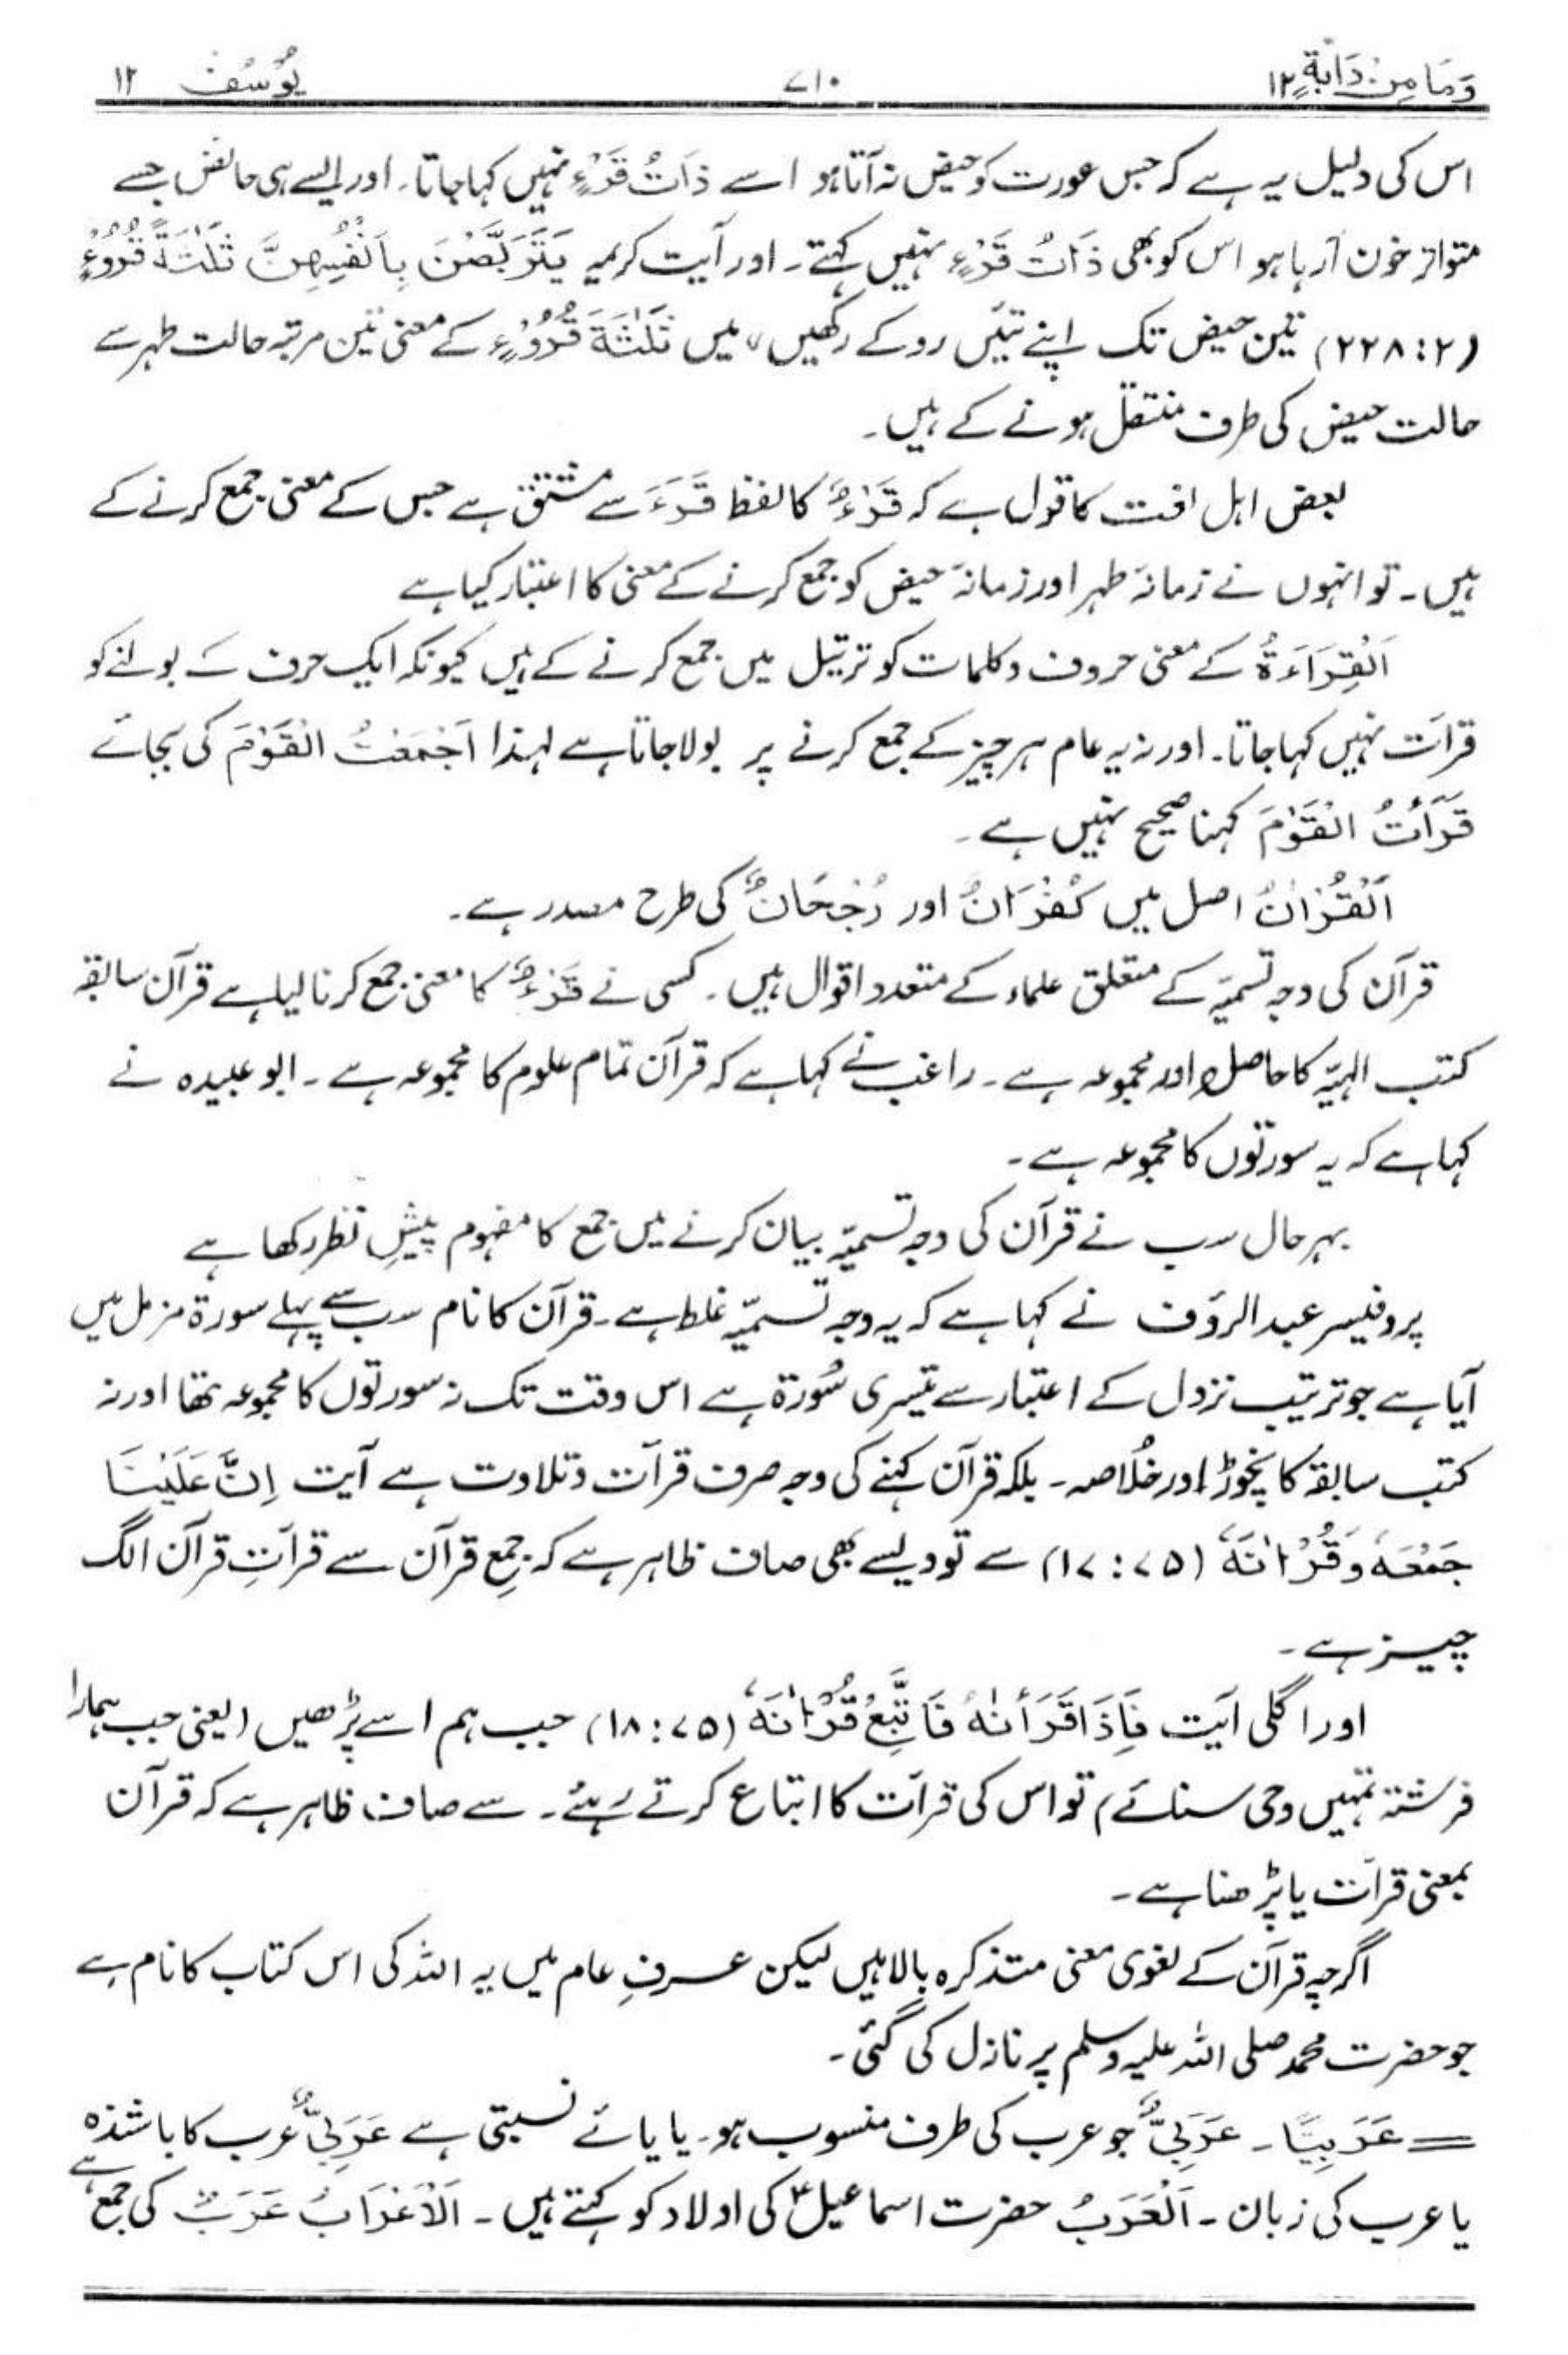 وَمَا مِنْ دَابَّةٍ ۱۲ ۷۱۰ یُوْسُفْ ۱۲
اس کی دلیل یہ ہے کہ جس عورت کو حیض نہ آتا ہو اسے ذَاتُ قَرْءٍ نہیں کہا جاتا۔ اور ایسے ہی حائض جسے
متواتر خون آرہا ہو اس کو بھی ذَاتُ قَرْءٍ نہیں کہتے۔ اور آیت کریمہ یَتَرَبَّصْنَ بِاَنْفُسِهِنَّ ثَلٰثَةَ قُرُوْءٍ
(۲۲۸:۲) تین حیض تک اپنے تئیں روکے رکھیں، میں ثَلٰثَةَ قُرُوْءٍ کے معنی تین مرتبہ حالت طہر سے
حالت حیض کی طرف منتقل ہونے کے ہیں۔
بعض اہل لغت کا قول ہے کہ قَرْءٌ کا لفظ قَرَءَ سے مشتق ہے جس کے معنی جمع کرنے کے
ہیں۔ تو انہوں نے زمانۂ طہر اور زمانۂ حیض کو جمع کرنے کے معنی کا اعتبار کیا ہے
اَلْقِرَاءَةُ کے معنی حروف و کلمات کو ترتیل میں جمع کرنے کے ہیں کیونکہ ایک حرف کے بولنے کو
قرآت نہیں کہا جاتا۔ اور نہ یہ عام ہر چیز کے جمع کرنے پر بولا جاتا ہے لہذا اَجْمَعْتُ الْقَوْمَ کی بجائے
قَرَأْتُ الْقَوْمَ کہنا صحیح نہیں ہے۔
اَلْقُرْاٰنُ اصل میں کُفْرَانٌ اور رُجْحَانٌ کی طرح مصدر ہے۔
قرآن کی وجہ تسمیّہ کے متعلق علماء کے متعدد اقوال ہیں۔ کسی نے قَرْءٌ کا معنی جمع کرنا لیا ہے قرآن سابقہ
کتب الہیّہ کا حاصل اور مجموعہ ہے۔ راغب نے کہا ہے کہ قرآن تمام علوم کا مجموعہ ہے۔ ابو عبیدہ نے
کہا ہے کہ یہ سورتوں کا مجموعہ ہے۔
بہر حال سب نے قرآن کی وجہ تسمیّہ بیان کرنے میں جمع کا مفہوم پیشِ نظر رکھا ہے
پروفیسر عبد الرؤف نے کہا ہے کہ یہ وجہ تسمیّہ غلط ہے۔ قرآن کا نام سب سے پہلے سورۃ مزمل میں
آیا ہے جو ترتیب نزول کے اعتبار سے تیسری سُورۃ ہے اس وقت تک نہ سورتوں کا مجموعہ تھا اور نہ
کتب سابقہ کا نچوڑ اور خُلاصہ۔ بلکہ قرآن کہنے کی وجہ صرف قرآت و تلاوت ہے آیت اِنَّ عَلَیْنَا
جَمْعَهٗ وَقُرْاٰنَهٗ (۱۷:۷۵) سے تو ویسے بھی صاف ظاہر ہے کہ جمعِ قرآن سے قرآتِ قرآن الگ
چیز ہے۔
اور اگلی آیت فَاِذَا قَرَأْنٰهُ فَاتَّبِعْ قُرْاٰنَهٗ (۱۸:۷۵) جب ہم اسے پڑھیں (یعنی جب ہمارا
فرشتہ تمہیں وحی سنائے) تو اس کی قرآت کا اتباع کرتے رہئے۔ سے صاف ظاہر ہے کہ قرآن
بمعنی قرآت یا پڑھنا ہے۔
اگرچہ قرآن کے لغوی معنی متذکرہ بالا ہیں لیکن عرفِ عام میں یہ اللہ کی اس کتاب کا نام ہے
جو حضرت محمد صلی اللہ علیہ وسلم پر نازل کی گئی۔
= عَرَبِیًّا۔ عَرَبِیٌّ جو عرب کی طرف منسوب ہو۔ یا یائے نسبتی ہے عَرَبِیٌّ عرب کا باشندہ
یا عرب کی زبان۔ اَلْعَرَبُ حضرت اسماعیلؑ کی اولاد کو کہتے ہیں۔ اَلْاَعْرَابُ عَرَبٌ کی جمع ہے